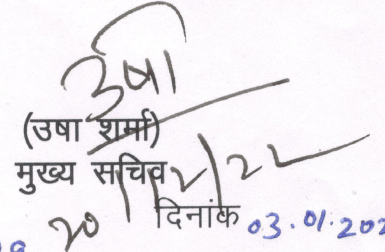 उषा
(उषा शर्मा)
मुख्य सचिव
20/12/22
दिनांक 03.01.202